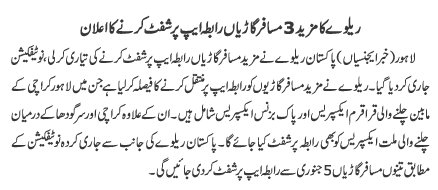 ریلوے کا مزید 3 مسافر گاڑیاں رابطہ ایپ پر شفٹ کرنے کا اعلان
لاہور (خبر ایجنسیاں) پاکستان ریلوے نے مزید مسافر گاڑیاں رابطہ ایپ پر شفٹ کرنے کی تیاری کر لی، نوٹیفکیشن
جاری کر دیا گیا۔ ریلوے نے مزید مسافر گاڑیوں کو رابطہ ایپ پر منتقل کرنے کا فیصلہ کر لیا ہے جن میں لاہور کراچی کے
مابین چلنے والی قراقرم ایکسپریس اور پاک بزنس ایکسپریس شامل ہیں۔ ان کے علاوہ کراچی اور سرگودھا کے درمیان
چلنے والی ملت ایکسپریس کو بھی رابطہ پر شفٹ کیا جائے گا۔ پاکستان ریلوے کی جانب سے جاری کردہ نوٹیفکیشن کے
مطابق تینوں مسافر گاڑیاں 5 جنوری سے رابطہ ایپ پر شفٹ کر دی جائیں گی۔